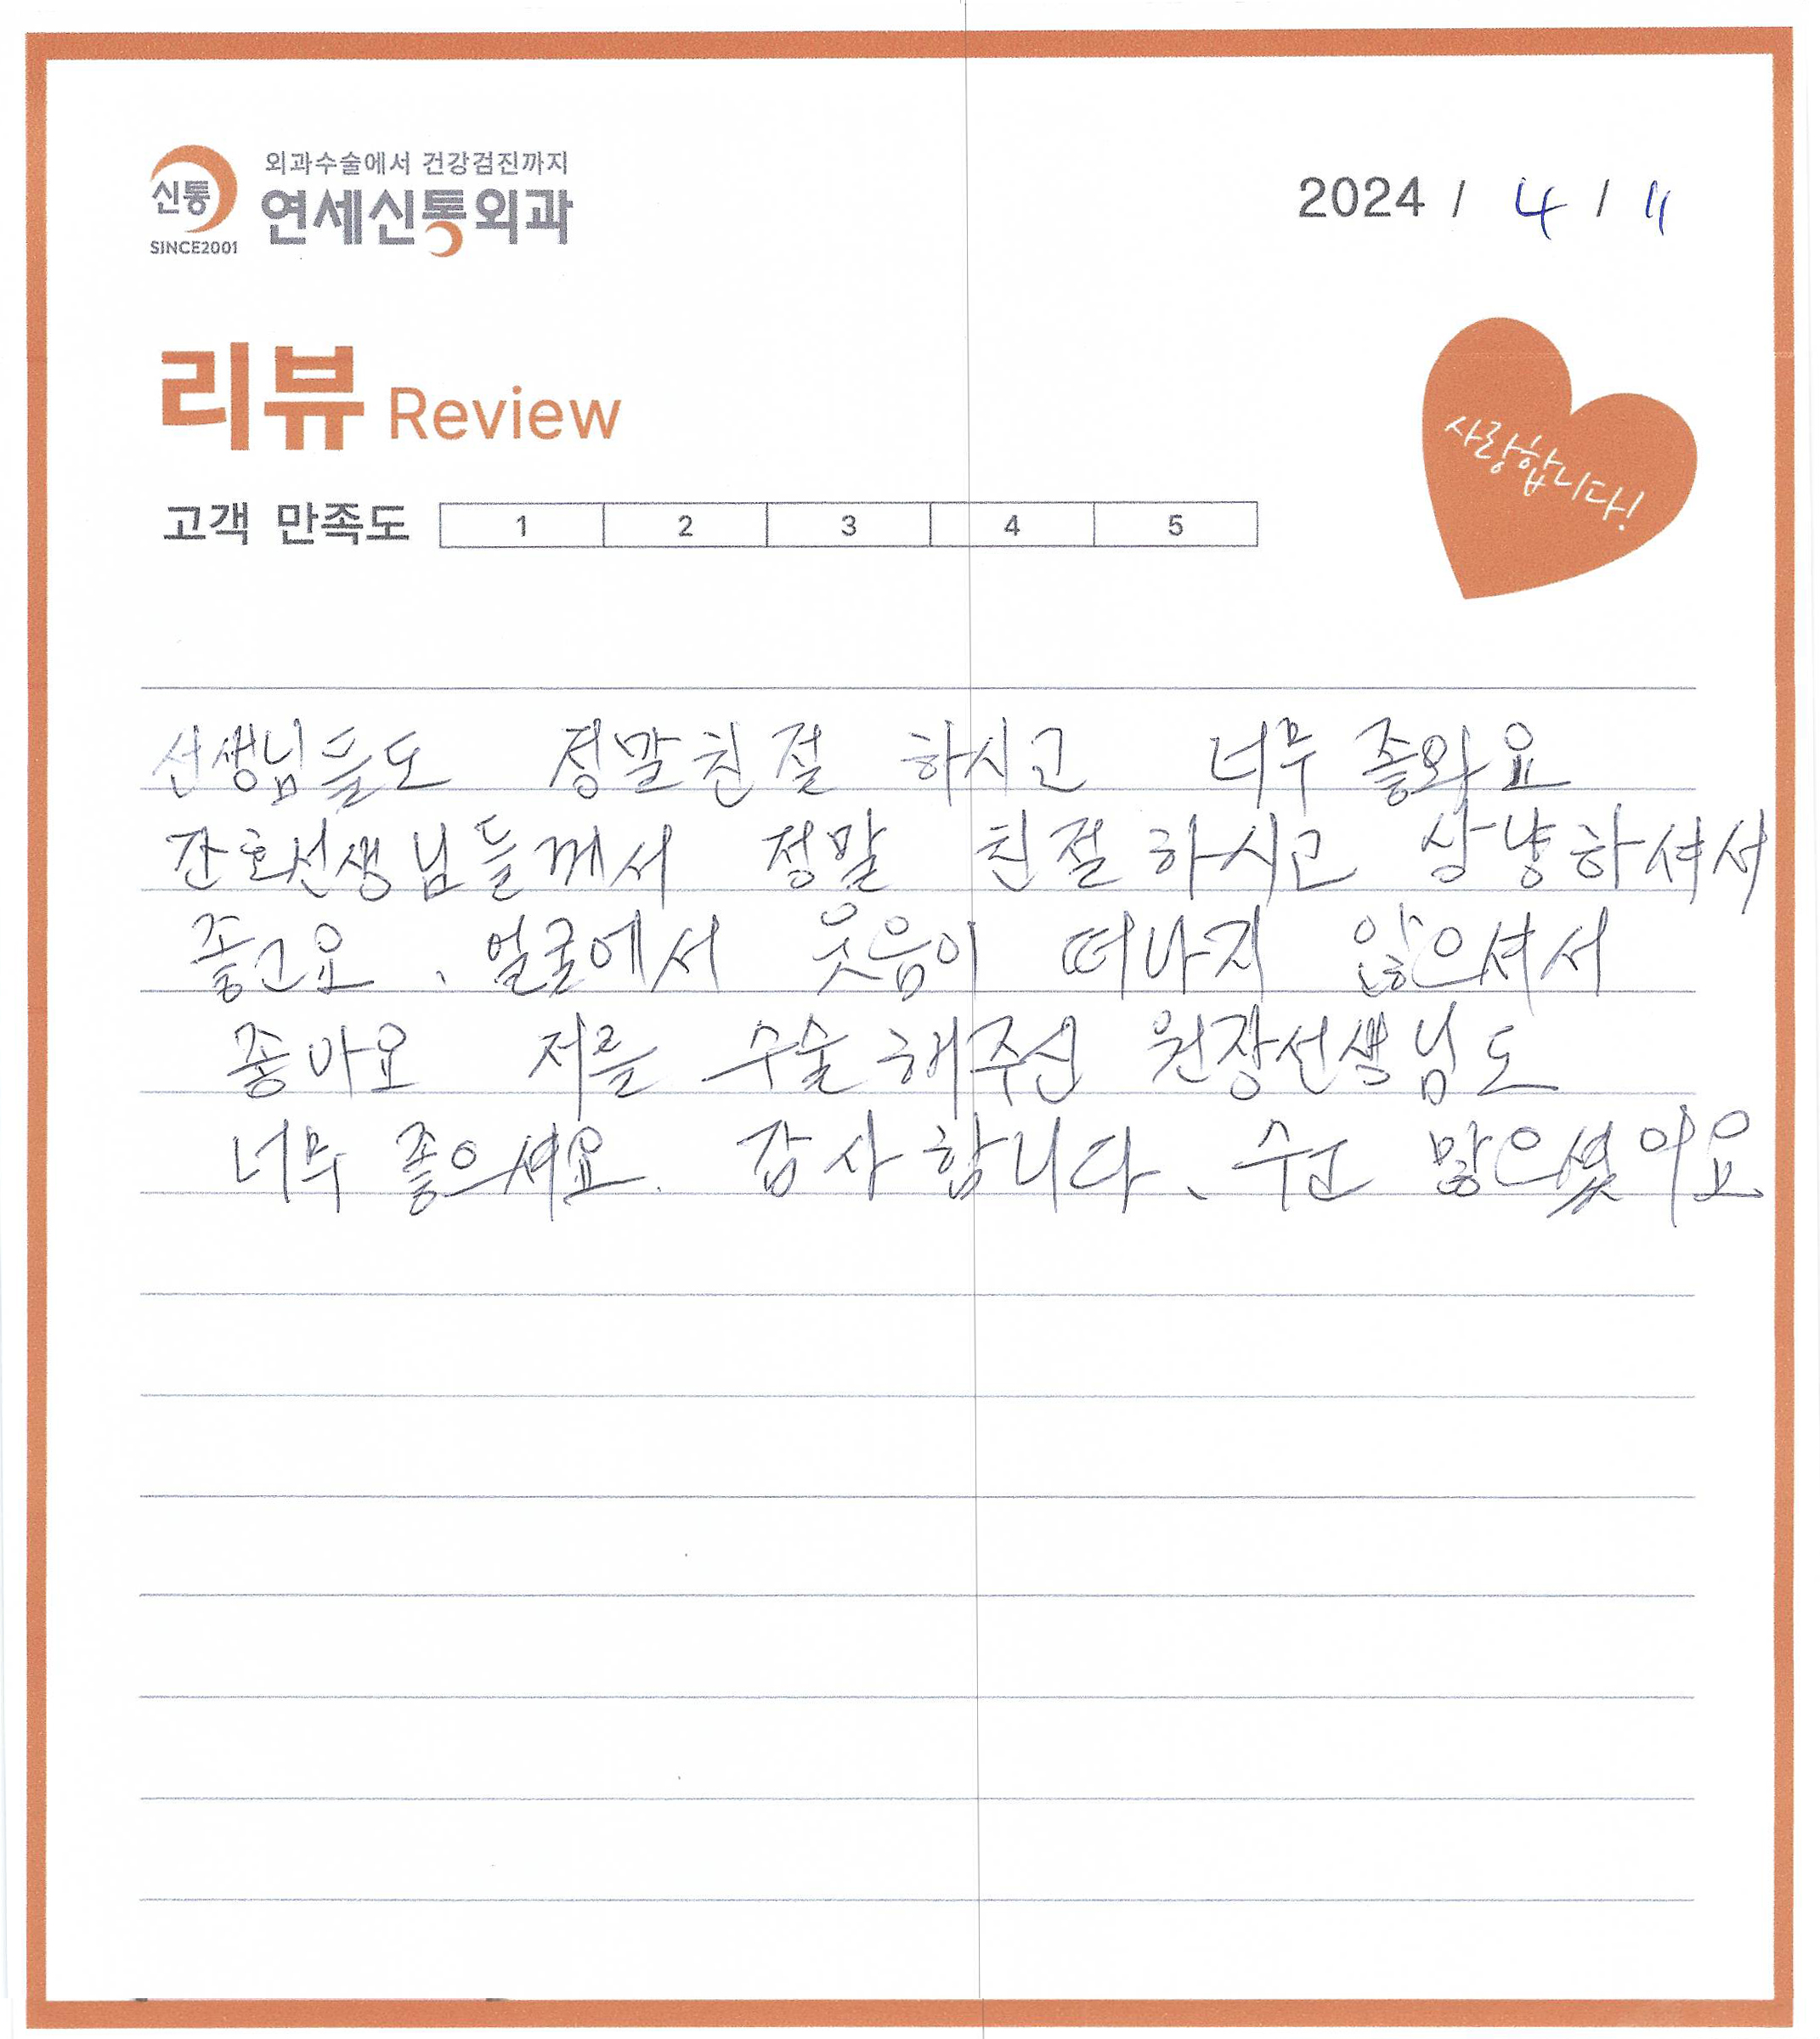 외과수술에서 건강검진까지
신통
연세신통외과
SINCE2001
2024 / 4 / 11
리뷰 Review
사랑합니다!
고객 만족도 1 2 3 4 5
선생님들도 정말친절 하시고 너무 좋와요
간호선생님들께서 정말 친절하시고 상냥하셔서
좋고요、얼굴에서 웃음이 떠나지 않으셔서
좋아요 저를 수술해주신 원장선생님도
너무 좋으셔요. 감사합니다、수고 많으셨어요